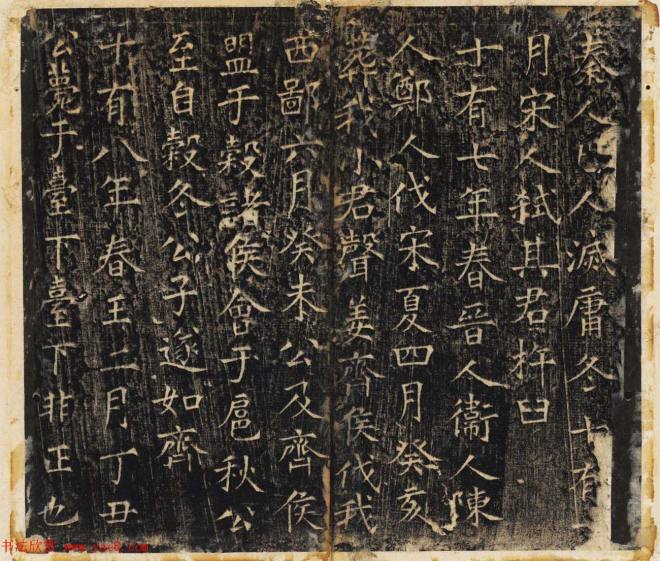 秦人巴人滅庸冬十有一
月宋人弒其君杵臼
十有七年春晉人衞人陳
人鄭人伐宋夏四月癸亥
葬我小君聲姜齊侯伐我
西鄙六月癸未公及齊侯
盟于穀諸侯會于扈秋公
至自穀冬公子遂如齊
十有八年春王二月丁丑
公薨于臺下臺下非正也
书法欣赏 www.yac8.com